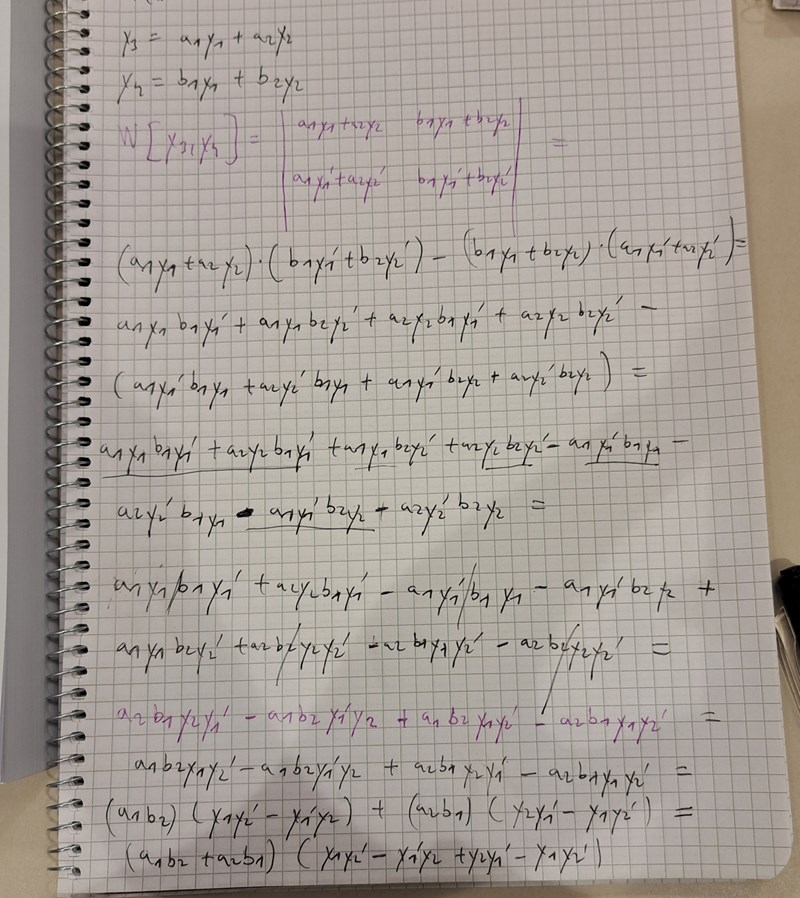 y₃ = a₁y₁ + a₂y₂
y₄ = b₁y₁ + b₂y₂
W[y₃,y₄] = | a₁y₁+a₂y₂ b₁y₁+b₂y₂ | =
| a₁y₁'+a₂y₂' b₁y₁'+b₂y₂' |
(a₁y₁+a₂y₂)·(b₁y₁'+b₂y₂') − (b₁y₁+b₂y₂)·(a₁y₁'+a₂y₂')=
a₁y₁b₁y₁' + a₁y₁b₂y₂' + a₂y₂b₁y₁' + a₂y₂b₂y₂' −
(a₁y₁'b₁y₁ + a₂y₂'b₁y₁ + a₁y₁'b₂y₂ + a₂y₂'b₂y₂) =
a₁y₁b₁y₁' + a₂y₂b₁y₁' + a₁y₁b₂y₂' + a₂y₂b₂y₂' − a₁y₁'b₁y₁ −
a₂y₂'b₁y₁ − a₁y₁'b₂y₂ + a₂y₂'b₂y₂ =
a₁y₁b₁y₁' + a₂y₂b₁y₁' − a₁y₁'b₁y₁ − a₁y₁'b₂y₂ +
a₁y₁b₂y₂' + a₂b₂y₂y₂' − a₂b₁y₁y₂' − a₂b₂y₂y₂' =
a₂b₁y₂y₁' − a₁b₂y₁'y₂ + a₁b₂y₁y₂' − a₂b₁y₁y₂' =
a₁b₂y₁y₂' − a₁b₂y₁'y₂ + a₂b₁y₂y₁' − a₂b₁y₁y₂' =
(a₁b₂)(y₁y₂' − y₁'y₂) + (a₂b₁)(y₂y₁' − y₁y₂') =
(a₁b₂ + a₂b₁)(y₁y₂' − y₁'y₂ + y₂y₁' − y₁y₂')